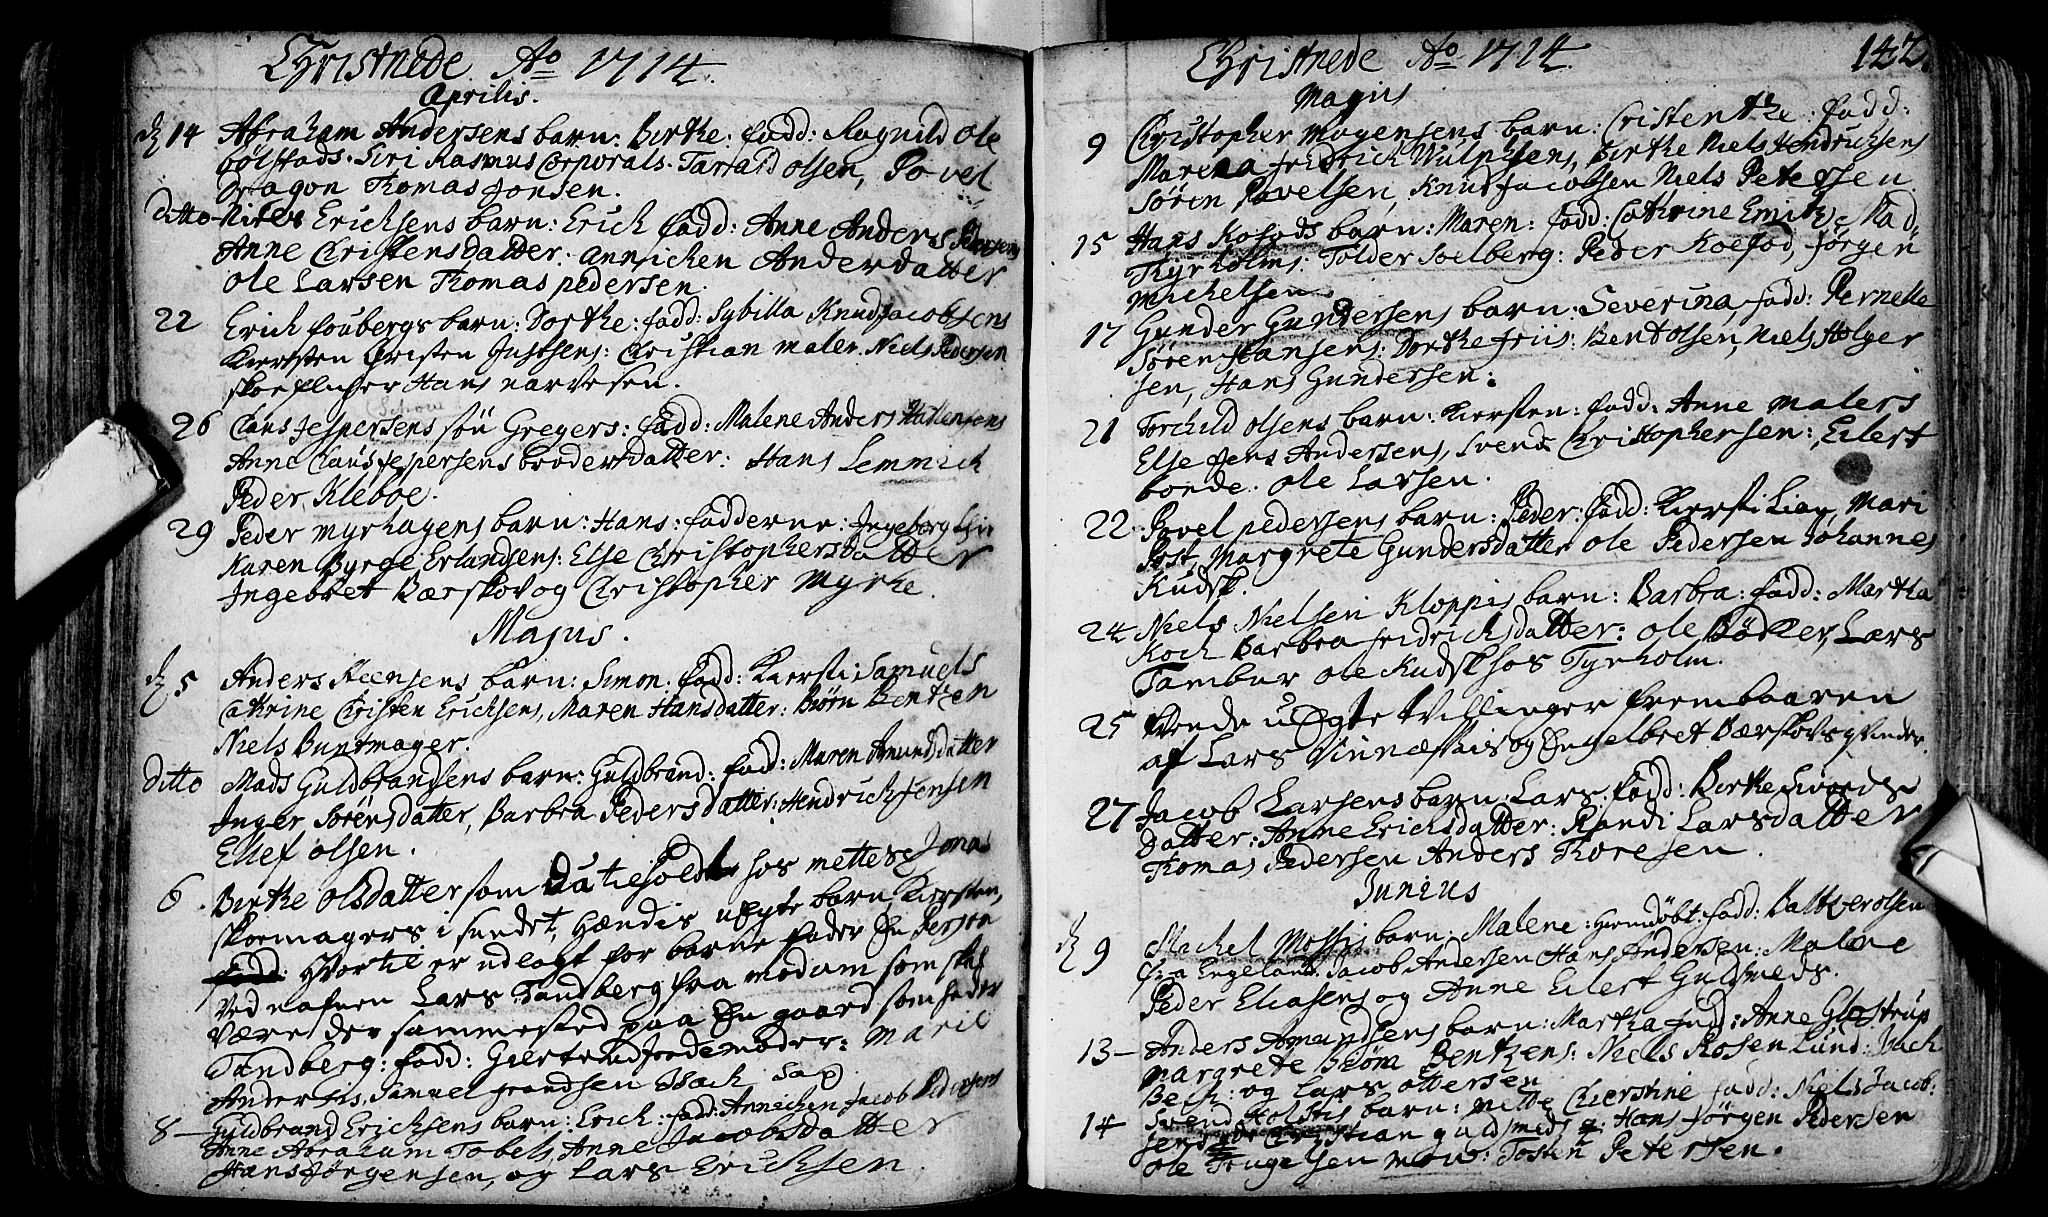 Christnede Ao 1714.
Aprilis.
d 14 Abraham Andersens barn: Birthe: fadd: Ragnild Ole
bølstads. Siri Rasmus Corporals. Tarrald olsen, Povel
Dragon Thomas Jonsen.
Ditto Ericksens barn: Erich fadd: Anne Anders Pedersens
Anne Christensdatter. annichen Andersdatter
Ole Larsen Thomas pedersen.
22 Erich foubergs barn: Dorthe: fadd: Sybilla Knud Jacobsens
Kiersten Christen Justsens: Christian maler. Niels Pedersen
skoeflicher Hans narvesen.
26 Claus Jespersens søn Gregers: fadd: Malene Anders
Anne Claus Jespersens broders datter: Hans Lemmich
Peder Kleboe.
29 Peder myrhagens barn: Hans: fadderne: Ingeborg
Karen Byrge Erlandsens: Else Christophersdatter
Ingebret Bærskov og Christopher Myrhe.
Majus.
d 5 Anders Reensens barn: Simon: fadd: Kiersti Samuels
Cathrine Christen Ericksens, Maren Hansdatter: Biørn Bentzen
Niels Buntmager.
ditto Mads Guldbrandsens barn: Guldbrand: fadd: Maren Amundsdatter
Inger Sørensdatter, Barbra Pedersdatter: Hendrich Jensen
Ellef olsen.
6 Birthe olsdatter som hos mettes Jonas
skoemagers i sundet, Hændis uEgte barn, Kiersten,
Hvortil er udlagt for barne fader En Person
ved nafnen Lars Tandberg fra modum som skal
være der sammested paa En gaard som heder
Tandberg: fadd: Giertrud Jordemoder: Marie
Anders Samuel frandsen Isach
8 Guldbrand Ericksens barn: Erich: fadd: Annichen Jacob Pedersens
Anne Abraham Tobels, Anne Jacobsdatter
Hans Jørgensen, og Lars Ericksen.
Christnede Ao 1714. 142.
Majus
9 Christopher Mogensens barn: Cristenthe: fadd:
Marena fridrich Wulphsens, Birthe Niels Hendrichsens
Søren Povelsen, Knud Jacobsen Niels Petersen
15 Hans Kofods barn: Maren: fadd: Cathrine Mad.
Thyrholms: Tolder Soelberg: Peder Koefod, Jørgen
Michelsen.
17 Gunder Gundersens barn: Severina, fadd: Pernelle
Søren Hansens: Dorthe friis: Bent olsen, Niels Holger
sen, Hans Gundersen:
21 Torchild olsens barn: Kiersten: fadd: Anne malers
Else Jens Andersens, Svend Christophersen: Eilert
bonde. ole Larsen.
22 Povel pedersens barn: Peder: fadd: Kiersti Lian, Mari
Post, Margrete Gundersdatter ole Pedersen Johannes
Kudsk.
24 Niels Nielsen Kloppis barn: Barbra: fadd: Martha
Koch Barbra fridrichsdatter: ole Bødker, Lars
Tambur ole Kudsk hos Tyrholm.
25 tvende uEgte tvillinger frembaaren
af Lars og Engelbret Bærskovs qvinder.
27 Jacob Larsens barn: Lars: fadd: Birthe Sivords
Datter: Anne Ericksdatter: Randi Larsdatter
Thomas Pedersen Anders Thoresen.
Junius
d 9 Michel Mossis barn: Malene: Hiemdøbt: fadd: Baltzer olsen
fra Engeland. Jacob Andersen Hans Andersen: Malene
Peder Eliasens og Anne Eilert Guldsmeds.
13 Anders Amundsens barn: Martha fadd: Anne Glostrup
Margrete Biørn Bentzens: Niels Rosenlund: Isach
Bech: og Lars ottersen
14 Svend Holstis barn: mette Chierstine fadd: Niels Jacob:
sens Christian guldsmeds: Hans Jørgen Pedersen
ole Trugelsen Tosten Petersen.